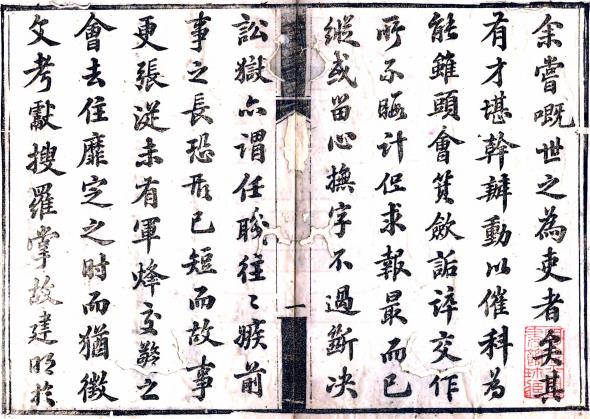 余嘗嘅世之為吏者矣其
有才堪幹辦動以催科為
能雖頭會箕斂詬誶交作
所不暇計但求報最而已
縱或留心撫字不過斷决
一
訟獄亦謂任職往〻嫉前
事之長恐形已短而故事
更張從未有軍烽交警之
會去住靡定之時而猶徵
文考獻搜羅掌故建明於